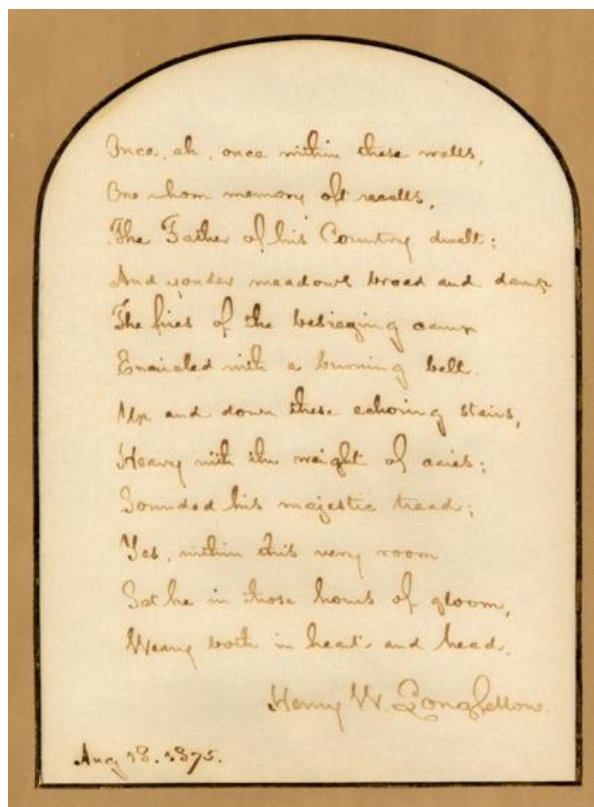 Once, ah, once within these walls,
One whom memory oft recalls,
The Father of his Country dwelt;
And yonder meadows broad and damp
The fires of the besieging camp
Encircled with a burning belt.
Up and down these echoing stairs,
Heavy with the weight of cares;
Sounded his majestic tread;
Yes, within this very room
Sat he in those hours of gloom,
Weary both in heart and head.
Henry W. Longfellow.
Aug 18. 1875.